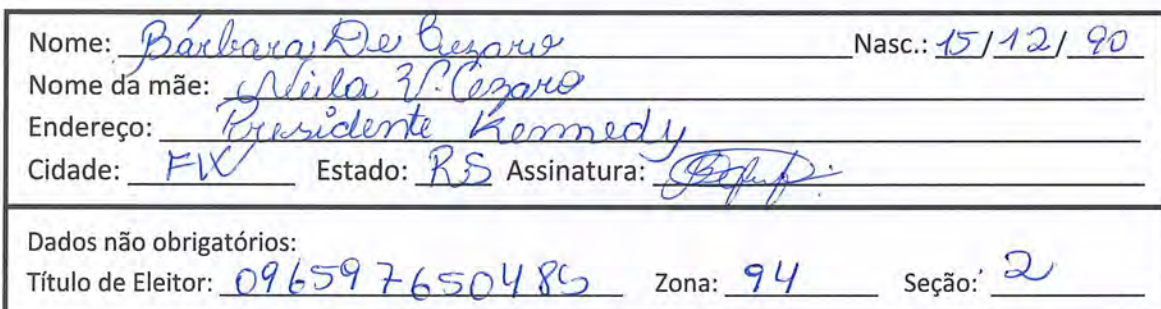 Nome: Bárbara De Cezaro Nasc.: 15/12/90
Nome da mãe: Neila V. Cezaro
Endereço: Presidente Kennedy
Cidade: FW Estado: RS Assinatura:
Dados não obrigatórios:
Título de Eleitor: 096597650485 Zona: 94 Seção: 2